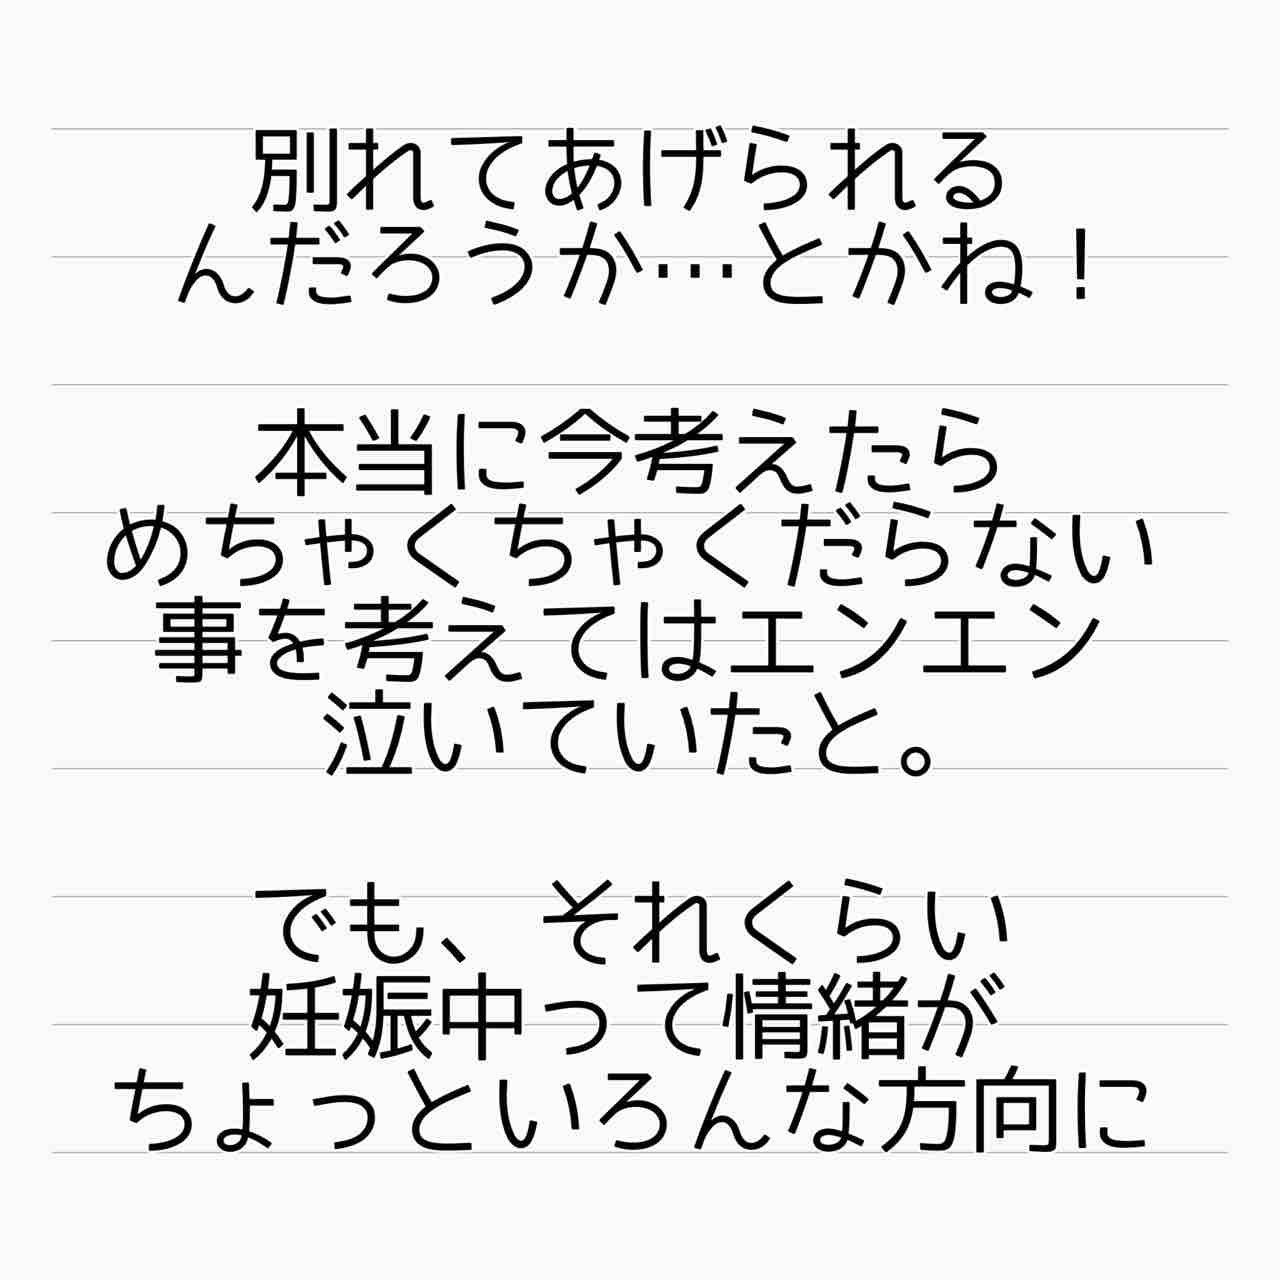 別れてあげられる
んだろうか…とかね！
本当に今考えたら
めちゃくちゃくだらない
事を考えてはエンエン
泣いていたと。
でも、それくらい
妊娠中って情緒が
ちょっといろんな方向に